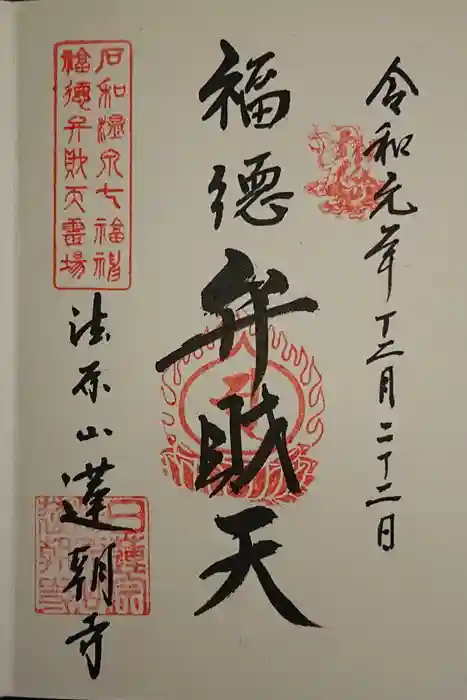 令和元年十二月二十二日
福德弁財天
石和温泉七福神
福徳弁財天霊場
法原山蓮朝寺